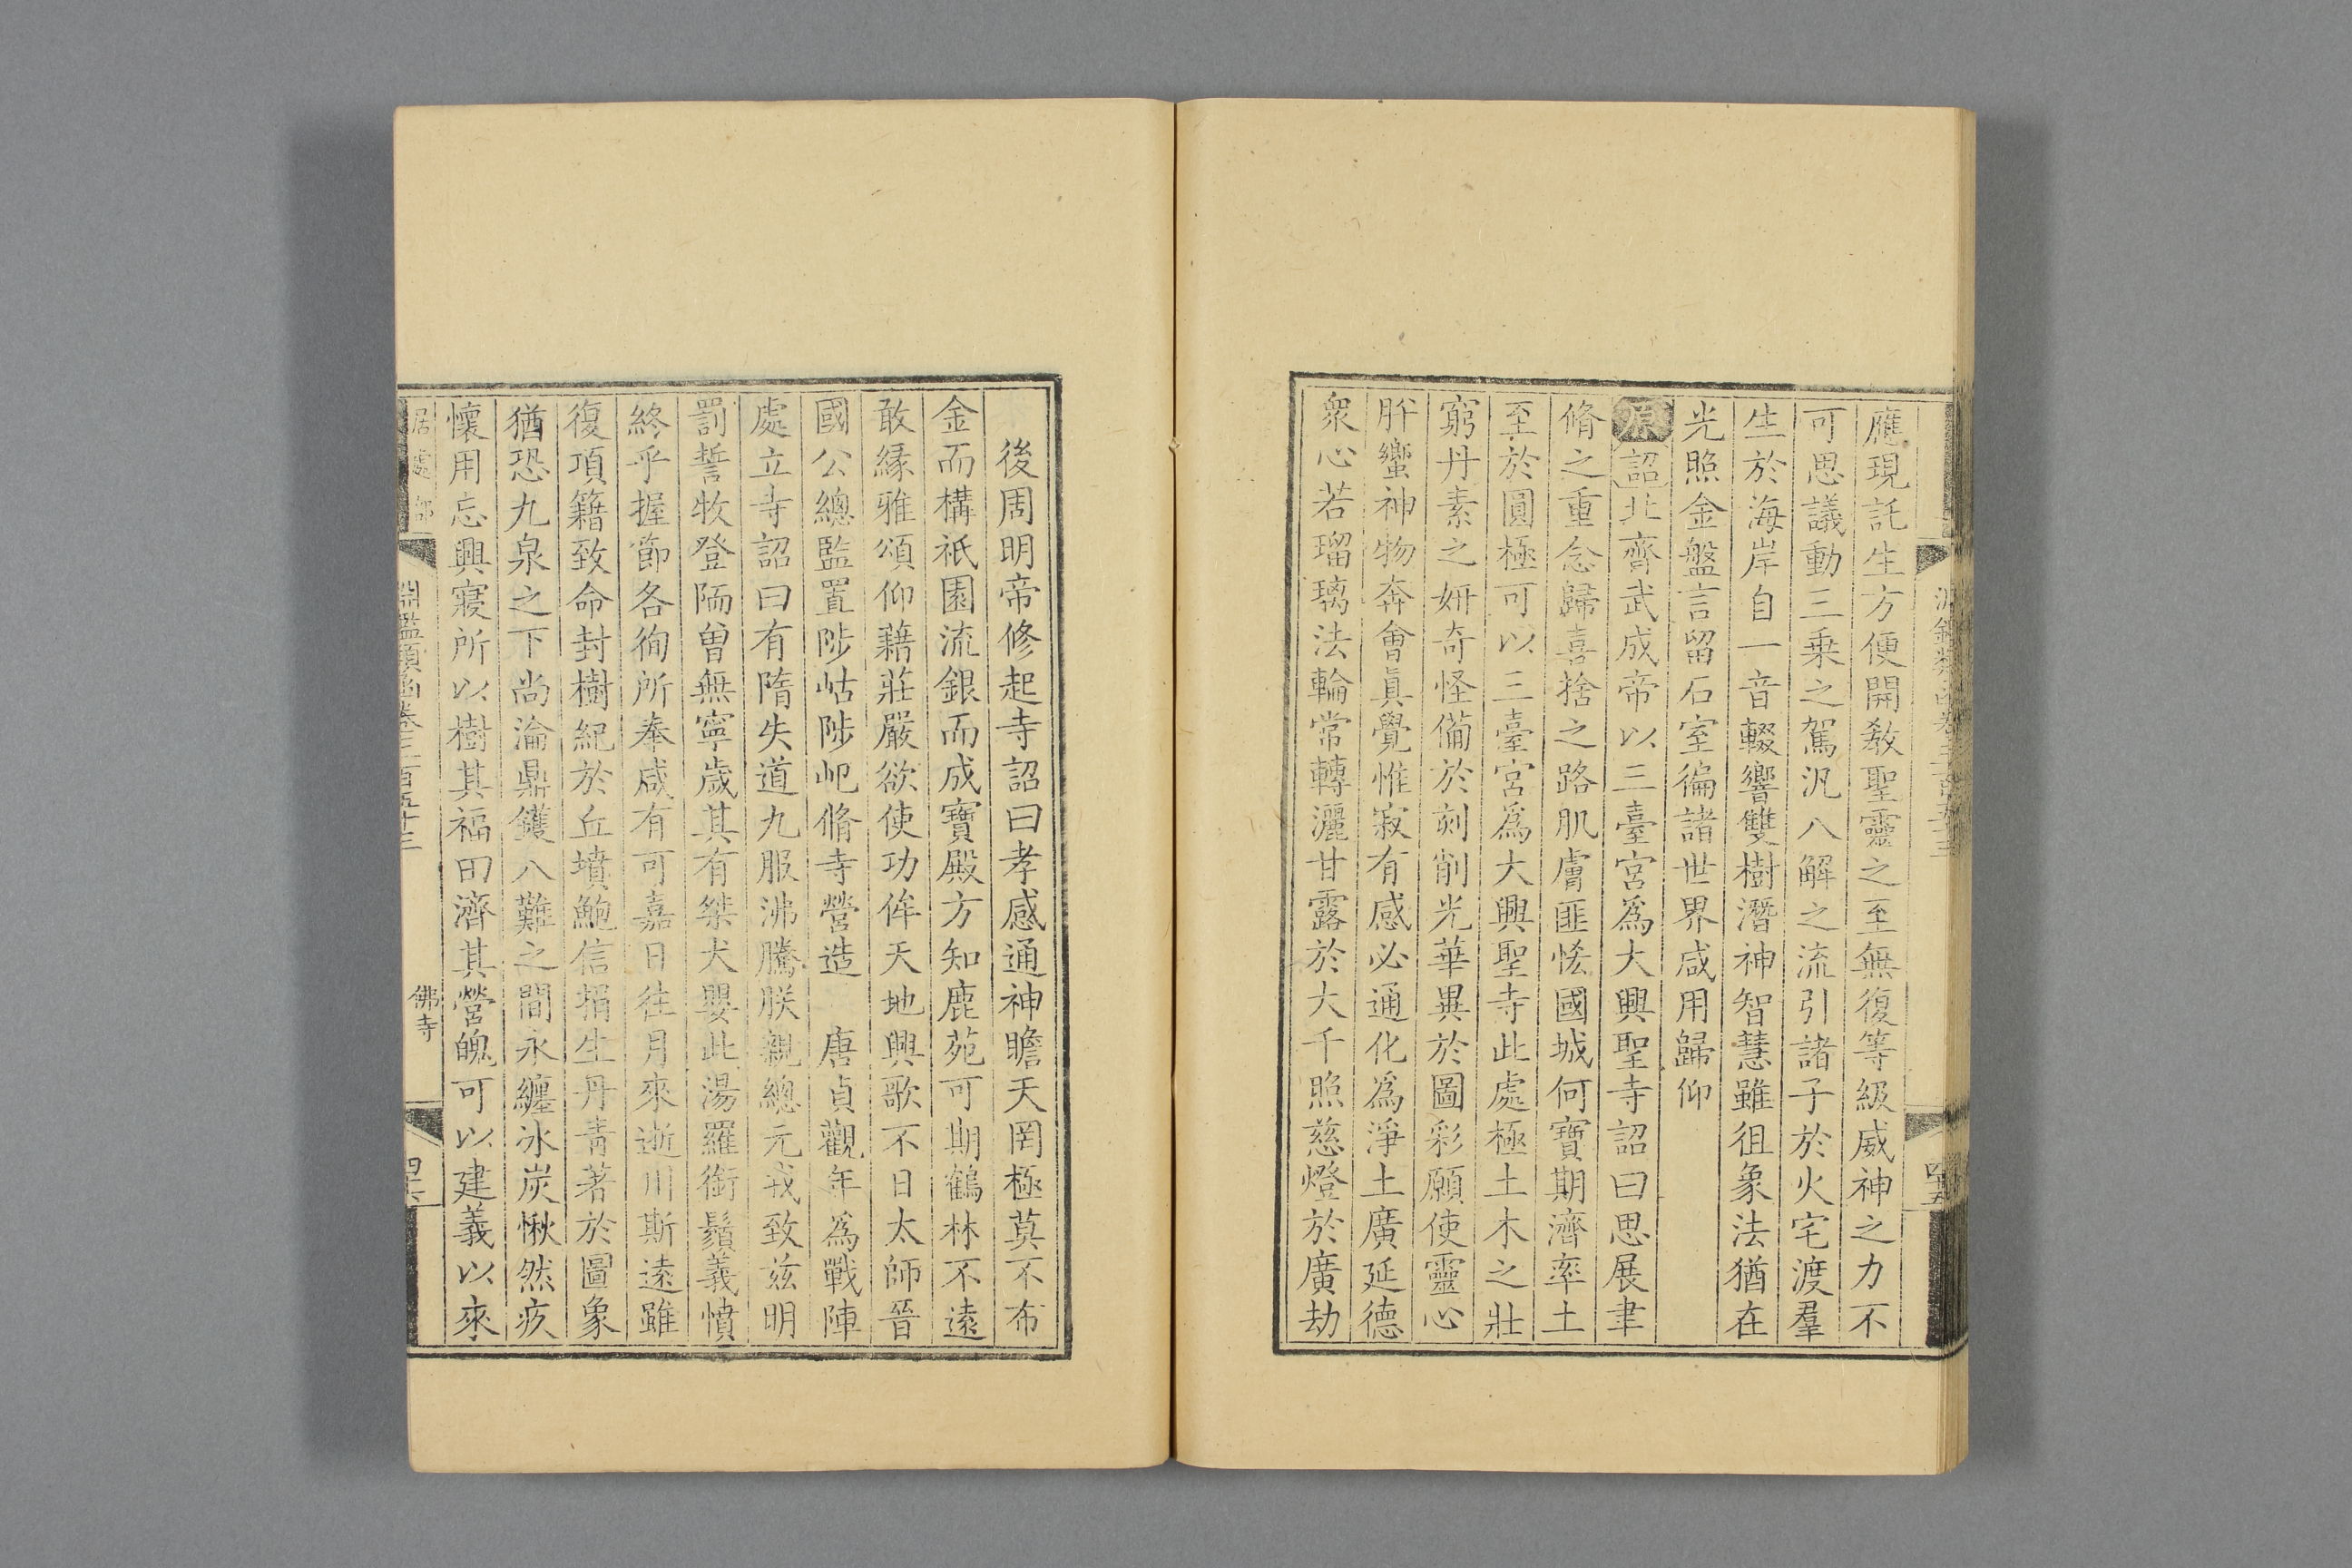 應現託生方便開敎聖靈之至無復等級威神之力不
可思議動三乗之駕汎八解之流引諸子於火宅渡羣
生於海岸自一音輟響雙樹潛神智慧雖徂象法猶在
光照金盤言留石室徧諸世界咸用歸仰
原詔北齊武成帝以三臺宮爲大興聖寺詔曰思展聿
脩之重念歸喜捨之路肌膚匪恡國城何寶期濟率土
至於圓極可以三臺宮爲大興聖寺此處極土木之壯
窮丹素之妍奇怪備於刻削光華畢於圖彩願使靈心
肸蠁神物奔會眞覺惟寂有感必通化爲淨土廣延德
衆心若瑠璃法輪常轉灑甘露於大千照慈燈於廣劫
後周明帝修起寺詔曰孝感通神瞻天罔極莫不布
金而構祇園流銀而成寶殿方知鹿苑可期鶴林不遠
敢緣雅頌仰藉莊嚴欲使功侔天地興歌不日太師晉
國公總監置陟岵陟屺脩寺營造　唐貞觀年爲戰陣
處立寺詔曰有隋失道九服沸騰朕親總元戎致茲明
罰誓牧登陑曾無寧歲其有桀犬嬰此湯羅銜鬚義憤
終乎握節各徇所奉咸有可嘉日往月來逝川斯遠雖
復項籍致命封樹紀於丘墳鮑信捐生丹靑著於圖象
猶恐九泉之下尚淪鼎鑊八難之間永纏冰炭愀然疚
懷用忘興寢所以樹其福田濟其營魄可以建義以來
居處部
淵鑑類函卷三百五十三
佛寺
四十六